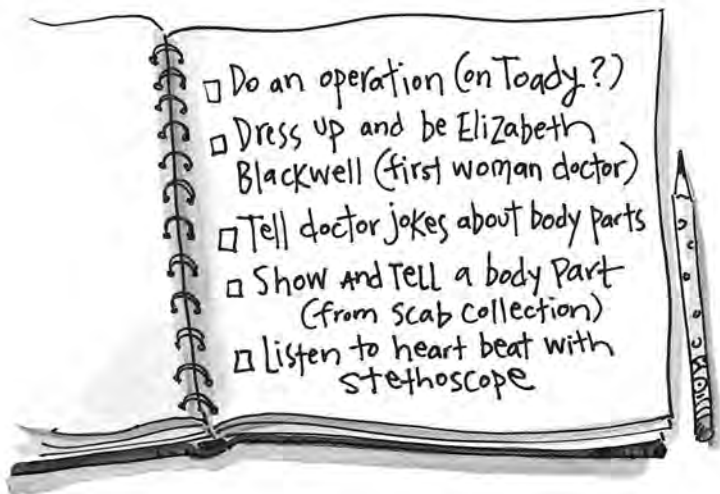 Do an operation (on Toady?)
Dress up and be Elizabeth
Blackwell (first woman doctor)
Tell doctor jokes about body parts
Show And Tell a body Part
(from scab collection)
Listen to heart beat with
stethoscope